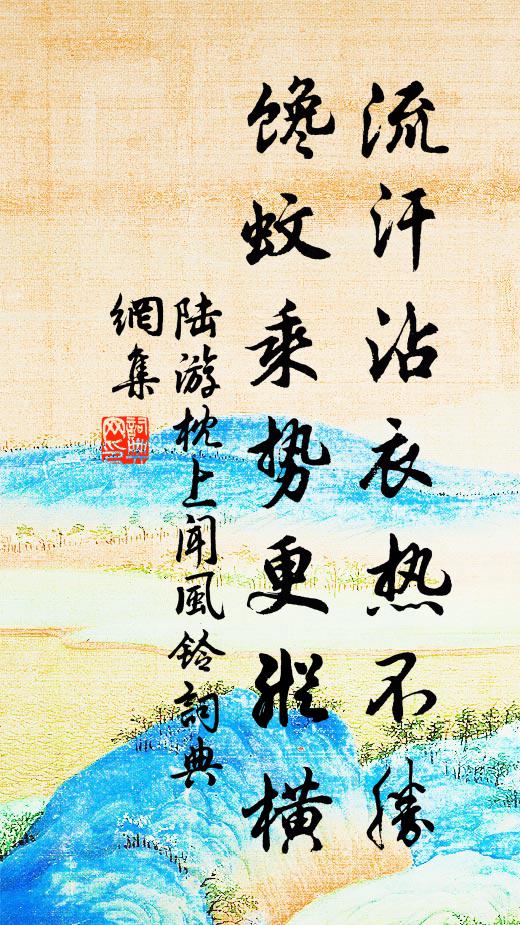 流汗沾衣热不勝
馋蚊乘势更縱横
陆游枕上闻風鈴詞典
網集